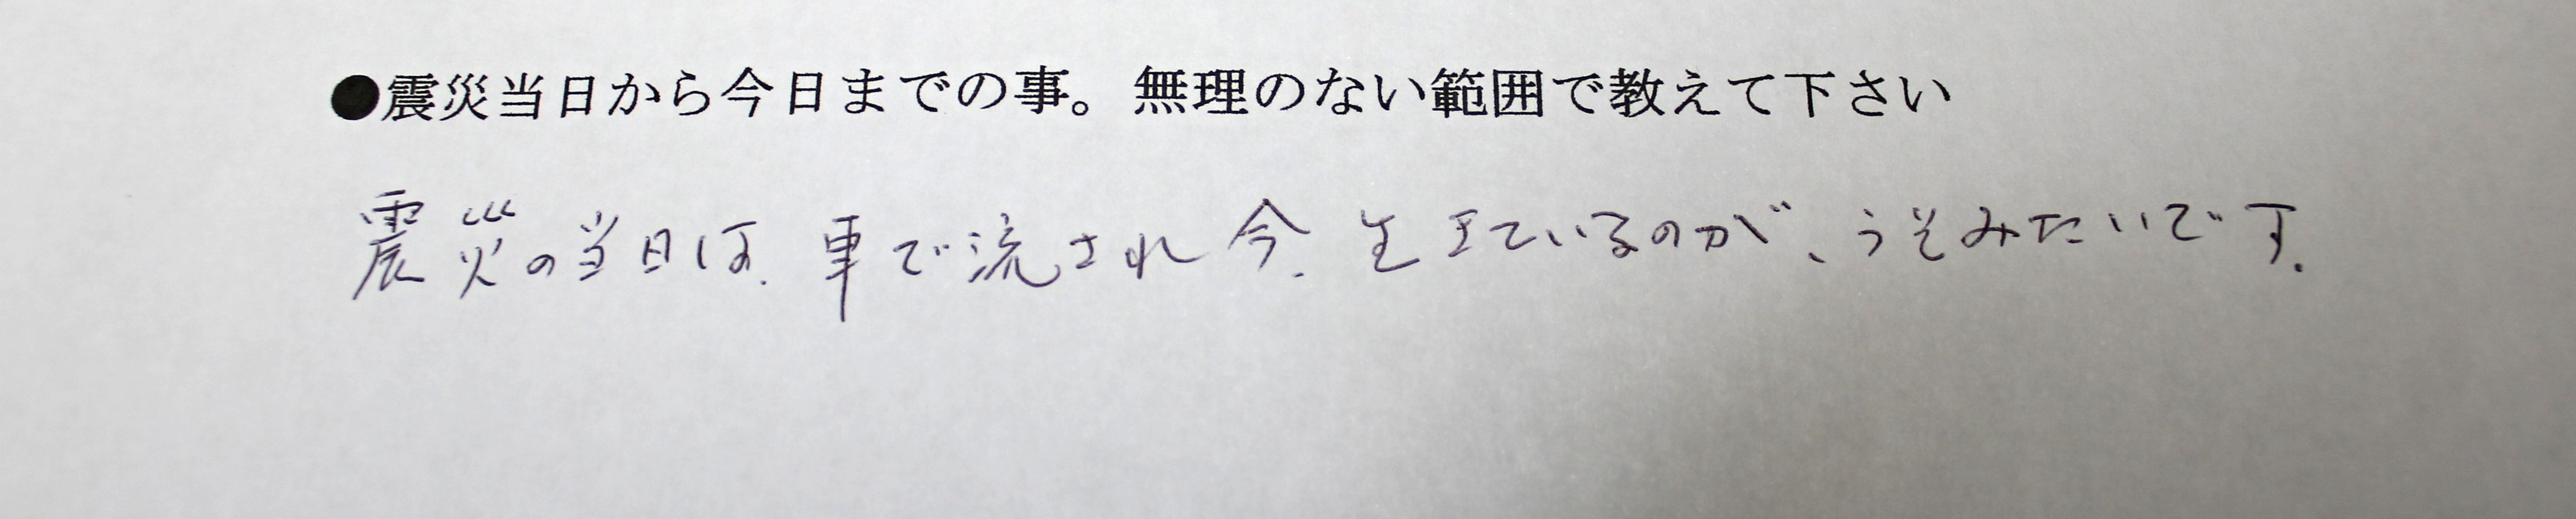 ●震災当日から今日までの事。無理のない範囲で教えて下さい
震災の当日は、車で流され今、生きているのが、うそみたいです。